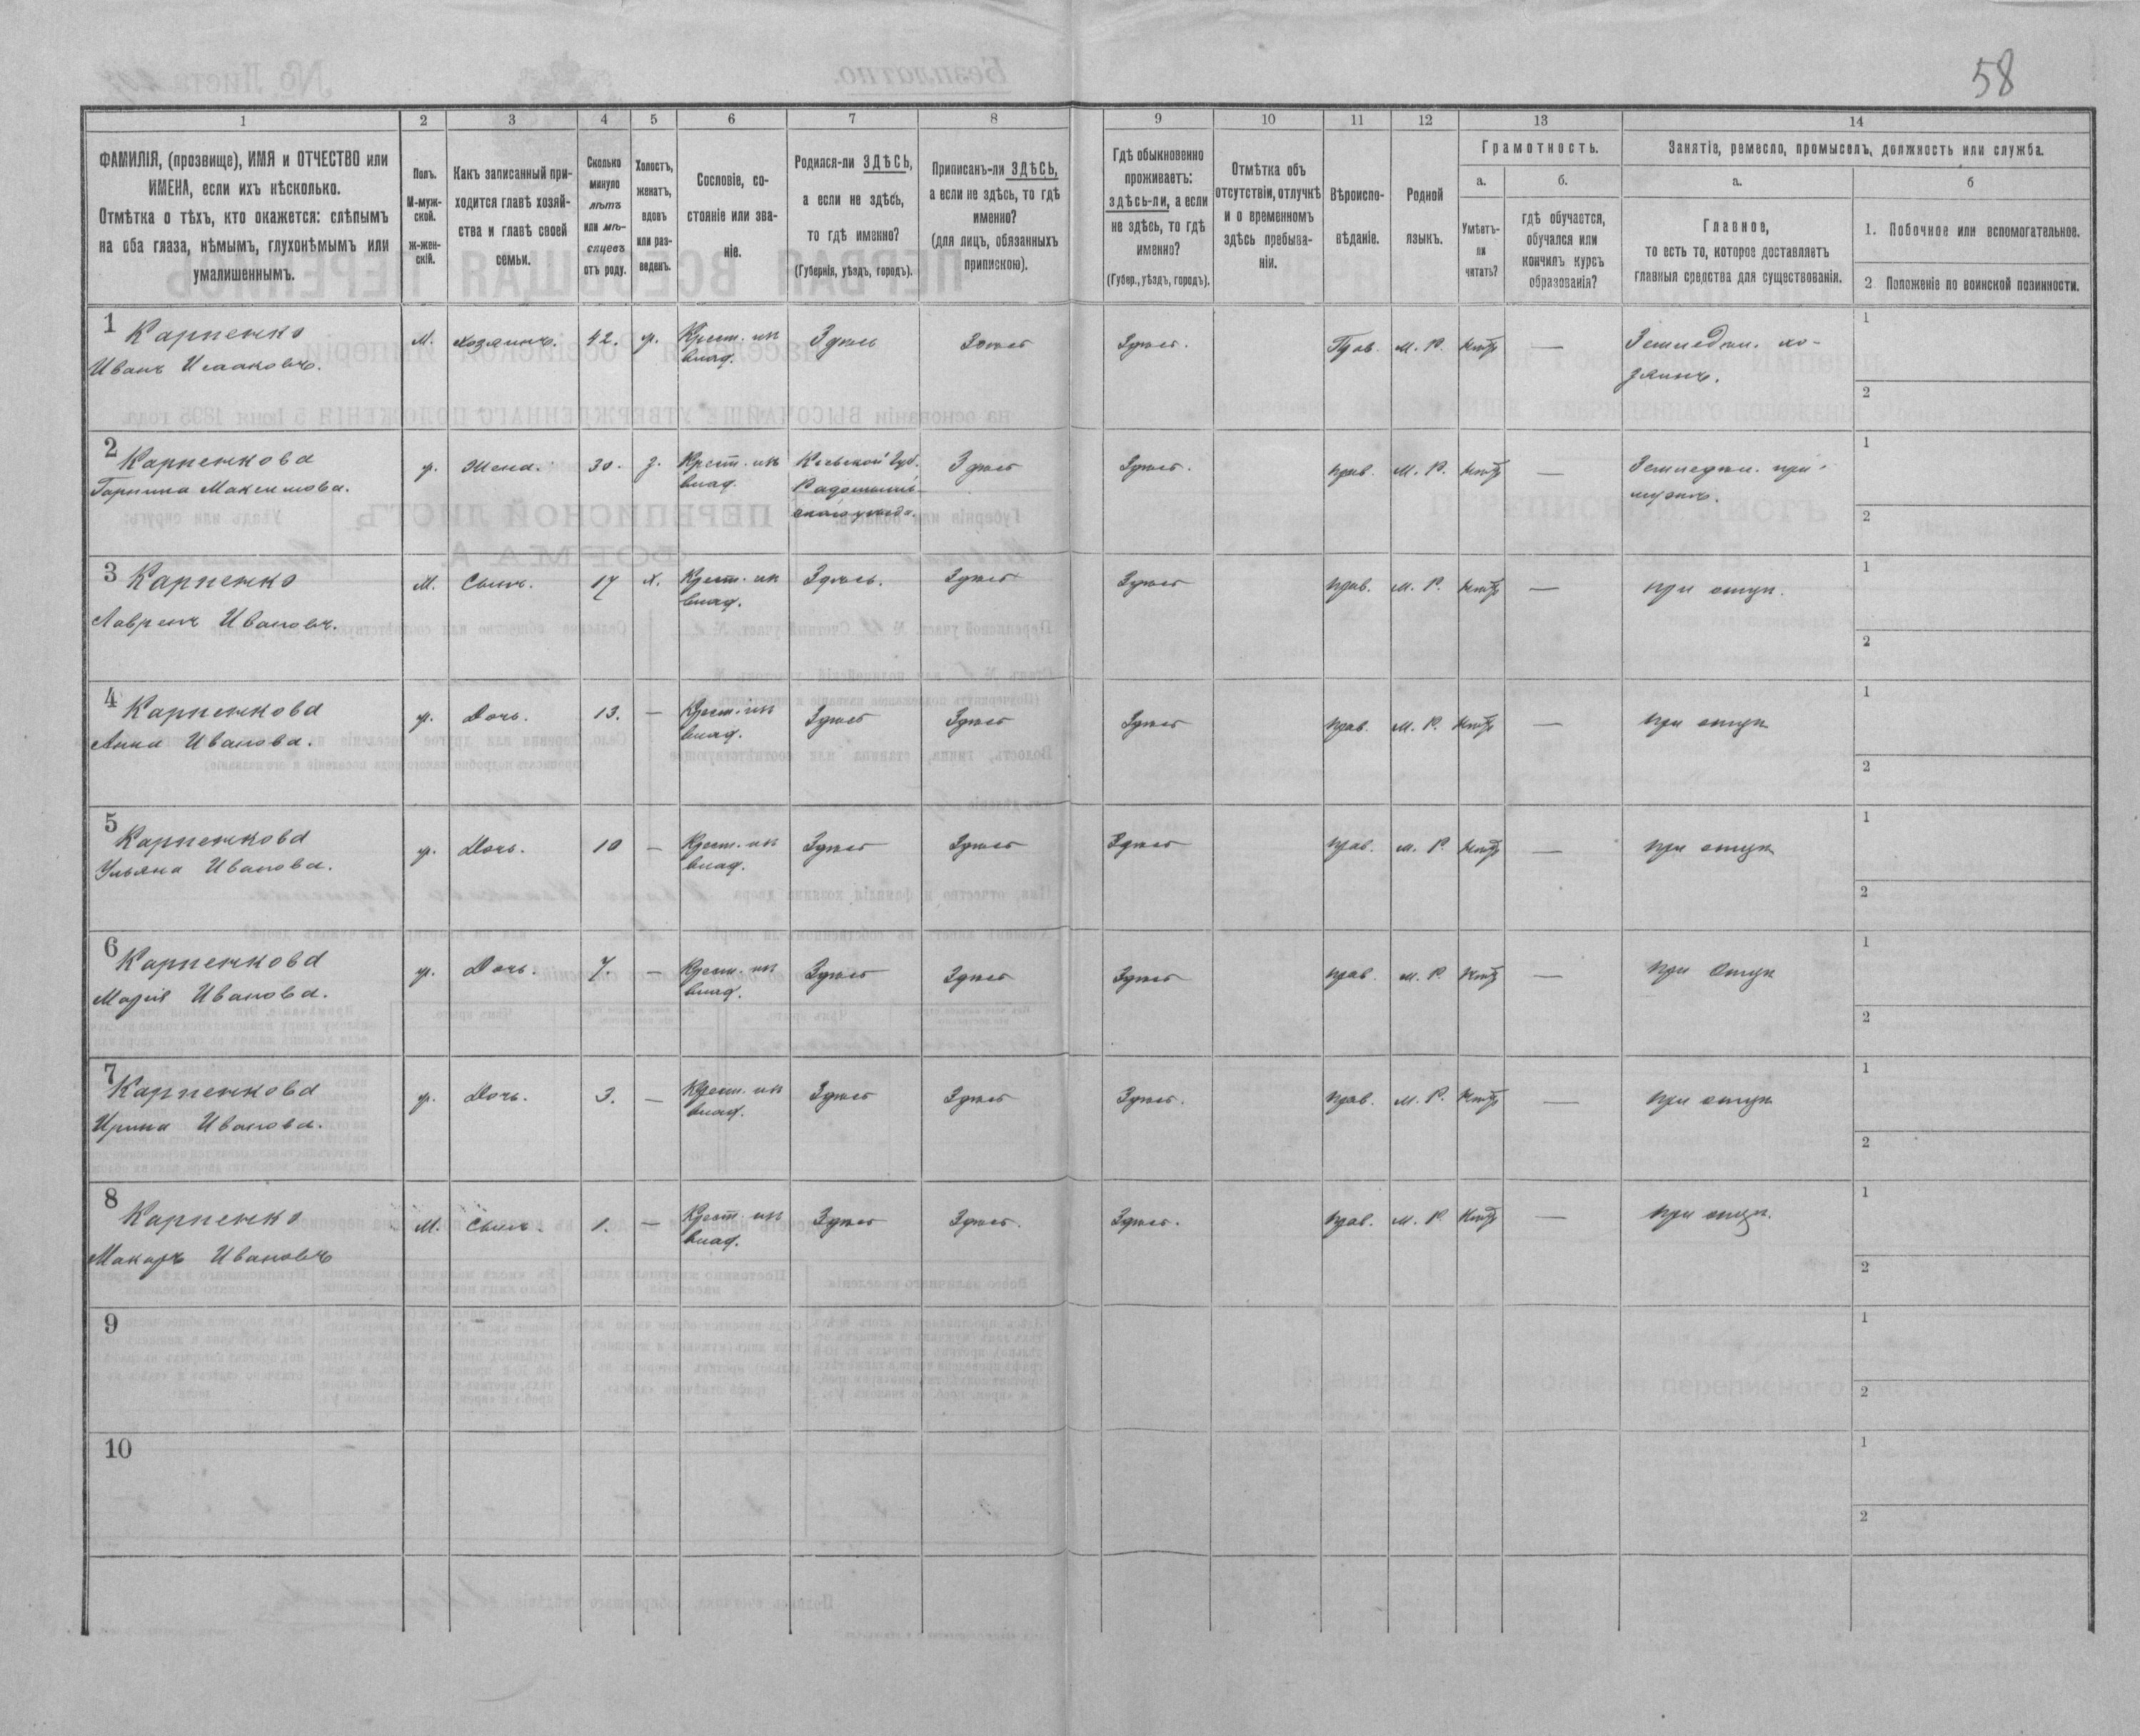 58
1 2 3 4 5 6 7 8 9 10 11 12 13 14
ФАМИЛІЯ, (прозвище), ИМЯ и ОТЧЕСТВО или
ИМЕНА, если ихъ нѣсколько.
Отмѣтка о тѣхъ, кто окажется: слѣпымъ
на оба глаза, нѣмымъ, глухонѣмымъ или
умалишеннымъ.
Полъ.
М-муж-
ской.
ж-жен-
скій.
Какъ записанный при-
ходится главѣ хозяй-
ства и главѣ своей
семьи.
Сколько
минуло
лѣтъ
или мѣ-
сяцевъ
отъ роду.
Холостъ,
женатъ,
вдовъ
или раз-
веденъ.
Сословіе, со-
стояніе или зва-
ніе.
Родился-ли ЗДѢСЬ,
а если не здѣсь,
то гдѣ именно?
(Губернія, уѣздъ, городъ).
Приписанъ-ли ЗДѢСЬ,
а если не здѣсь, то гдѣ
именно?
(для лицъ, обязанныхъ
припискою).
Гдѣ обыкновенно
проживаетъ:
здѣсь-ли, а если
не здѣсь, то гдѣ
именно?
(Губер., уѣздъ, городъ).
Отмѣтка объ
отсутствіи, отлучкѣ
и о временномъ
здѣсь пребыва-
ніи.
Вѣроиспо-
вѣданіе.
Родной
языкъ.
Грамотность.
а.
Умѣетъ-
ли
читать?
б.
гдѣ обучается,
обучался или
кончилъ курсъ
образованія?
Занятіе, ремесло, промыселъ, должность или служба.
а.
Главное,
то есть то, которое доставляетъ
главныя средства для существованія.
б
1. Побочное или вспомогательное.
2 Положеніе по воинской повинности.
1 Карпенко М. хозяинъ. 42. Крест. Здѣсь Здѣсь Здѣсь. Прав. М. Р. — Земледѣл. хо-
Иванъ Исааковъ. влад. зяинъ.
1
2
2 Карпенкова ж. Жена. 30. Крест. Кіевской губ. Здѣсь Здѣсь. прав. М. Р. — Земледѣл. при
Максимова. влад. Радомысль- мужѣ.
скаго уѣзда.
1
2
3 Карпенко М. Сынъ. 17 х. Крест. Здѣсь. Здѣсь Здѣсь прав. М. Р. — при отцѣ.
Ивановъ. влад.
1
2
4 Карпенкова ж. Дочь. 13. — Крест. Здѣсь Здѣсь Здѣсь прав. М. Р. — при отцѣ
Анна Иванова. влад.
1
2
5 Карпенкова ж. Дочь. 10 — Крест. Здѣсь Здѣсь Здѣсь прав. М. Р. — при отцѣ
Ульяна Иванова. влад.
1
2
6 Карпенкова ж. Дочь. 7. — Крест. Здѣсь Здѣсь Здѣсь прав. М. Р. — при отцѣ
Марія Иванова. влад.
1
2
7 Карпенкова ж. Дочь. 3. — Крест. Здѣсь Здѣсь Здѣсь. прав. М. Р. — при отцѣ
Ирина Иванова. влад.
1
2
8 Карпенко М. Сынъ. 1. — Крест. Здѣсь Здѣсь. Здѣсь. прав. М. Р. — при отцѣ.
Макаръ Ивановъ влад.
1
2
9
1
2
10
1
2